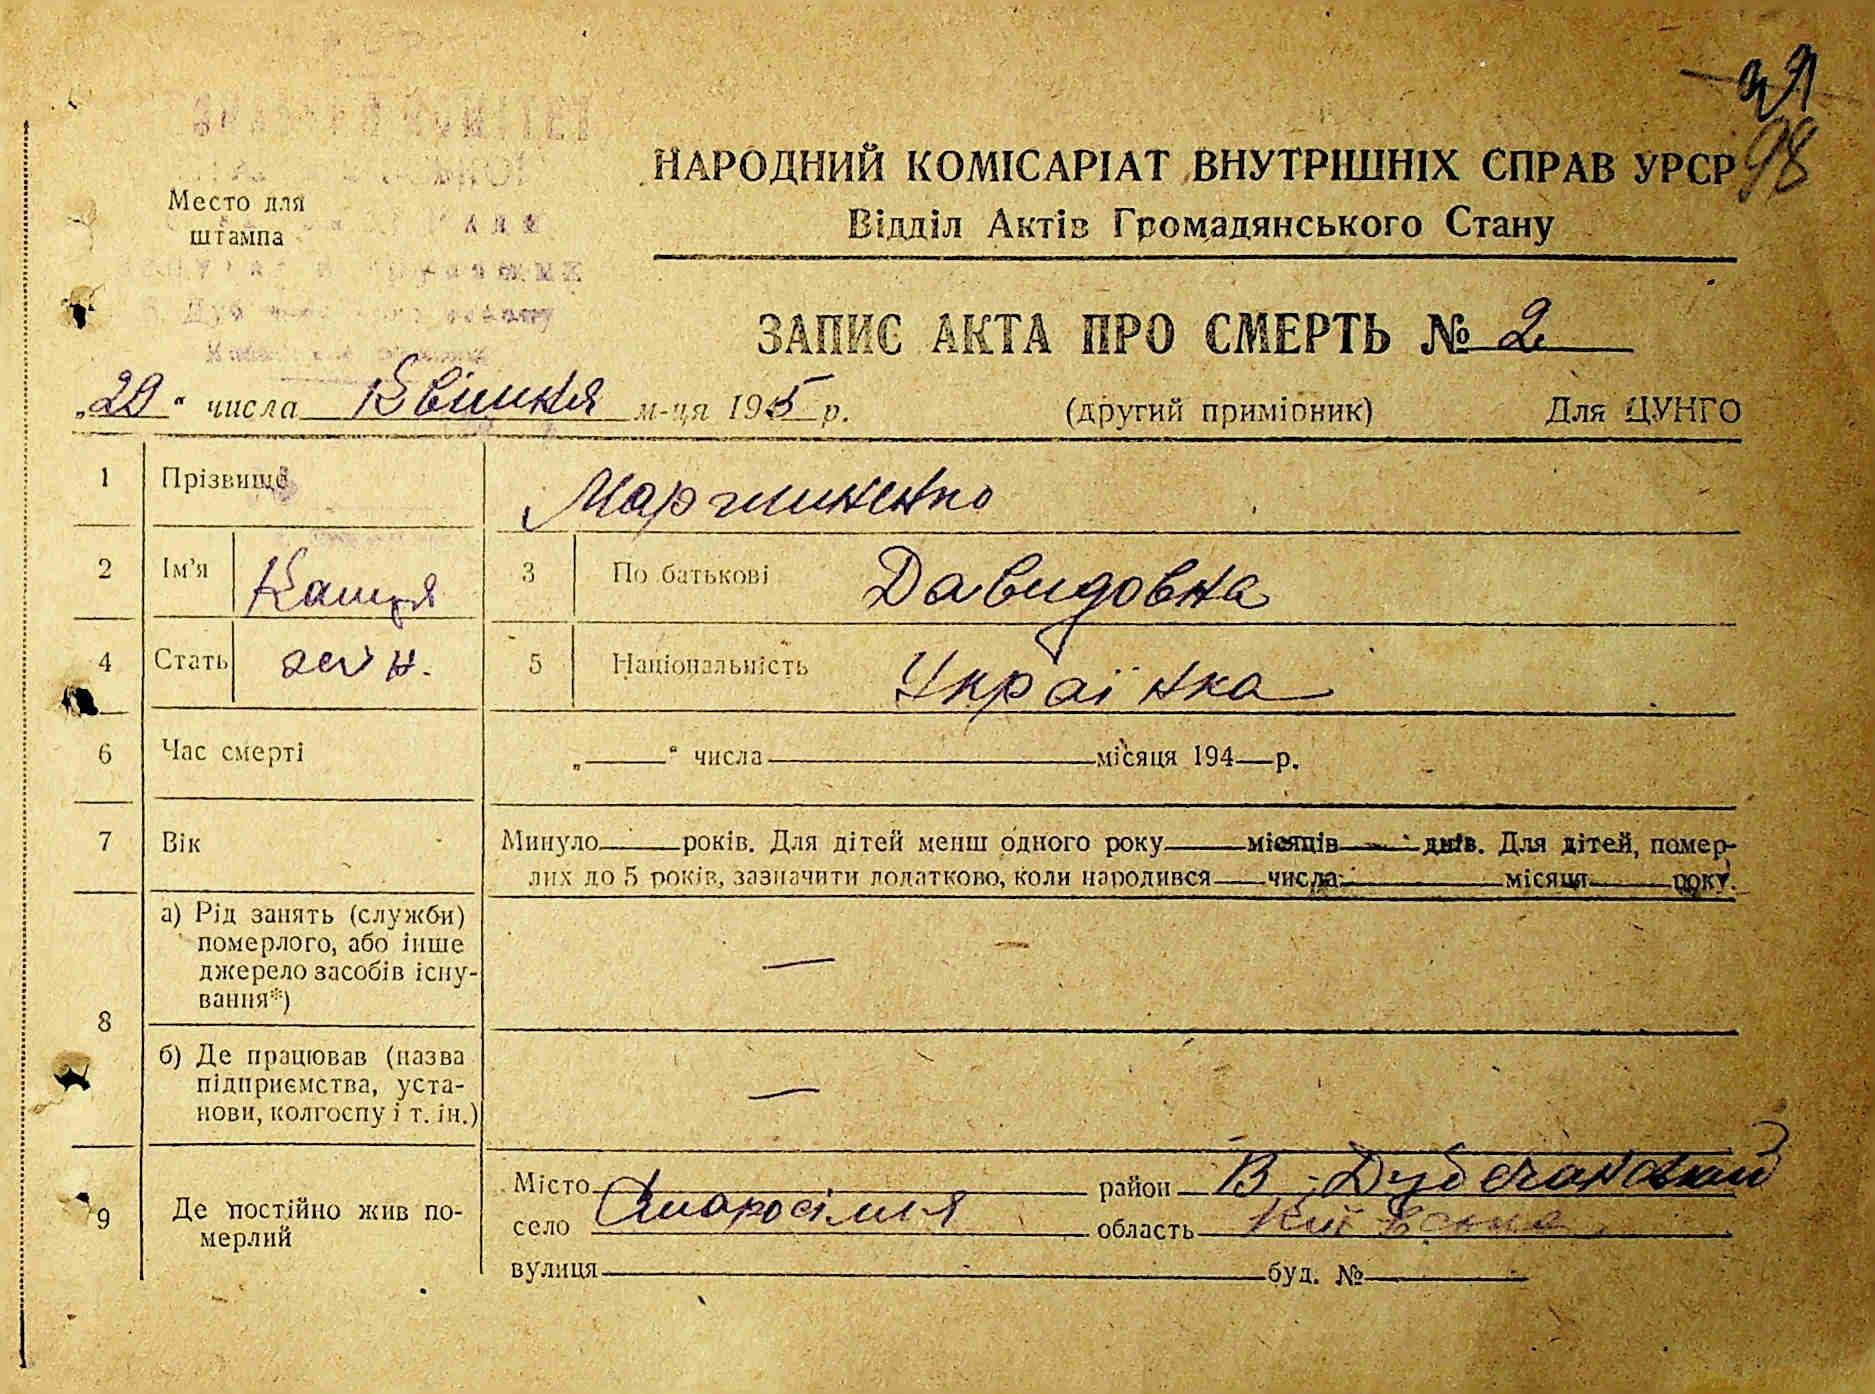 98
НАРОДНИЙ КОМІСАРІАТ ВНУТРІШНІХ СПРАВ УРСР
Відділ Актів Громадянського Стану
Место для
штампа
КОМІТЕТ
ЗАПИС АКТА ПРО СМЕРТЬ № 2
„29“ числа Квітня м-ця 1945 р. (другий примірник) Для ЦУНГО
1 Прізвище Мартиненко
2 Ім'я Катря 3 По батькові Давидовна
4 Стать жін. 5 Національність Українка
6 Час смерті „ “ числа місяця 194 р.
7 Вік Минуло років. Для дітей менш одного року місяців днів. Для дітей, помер-
лих до 5 років, зазначити додатково, коли народився числа місяця року.
8 а) Рід занять (служби)
померлого, або інше
джерело засобів існу-
вання*) —
б) Де працював (назва
підприємства, уста-
нови, колгоспу і т. ін.) —
9 Де постійно жив по-
мерлий
Місто район В. Дубечанський
село Старосілля область Київська
вулиця буд. №